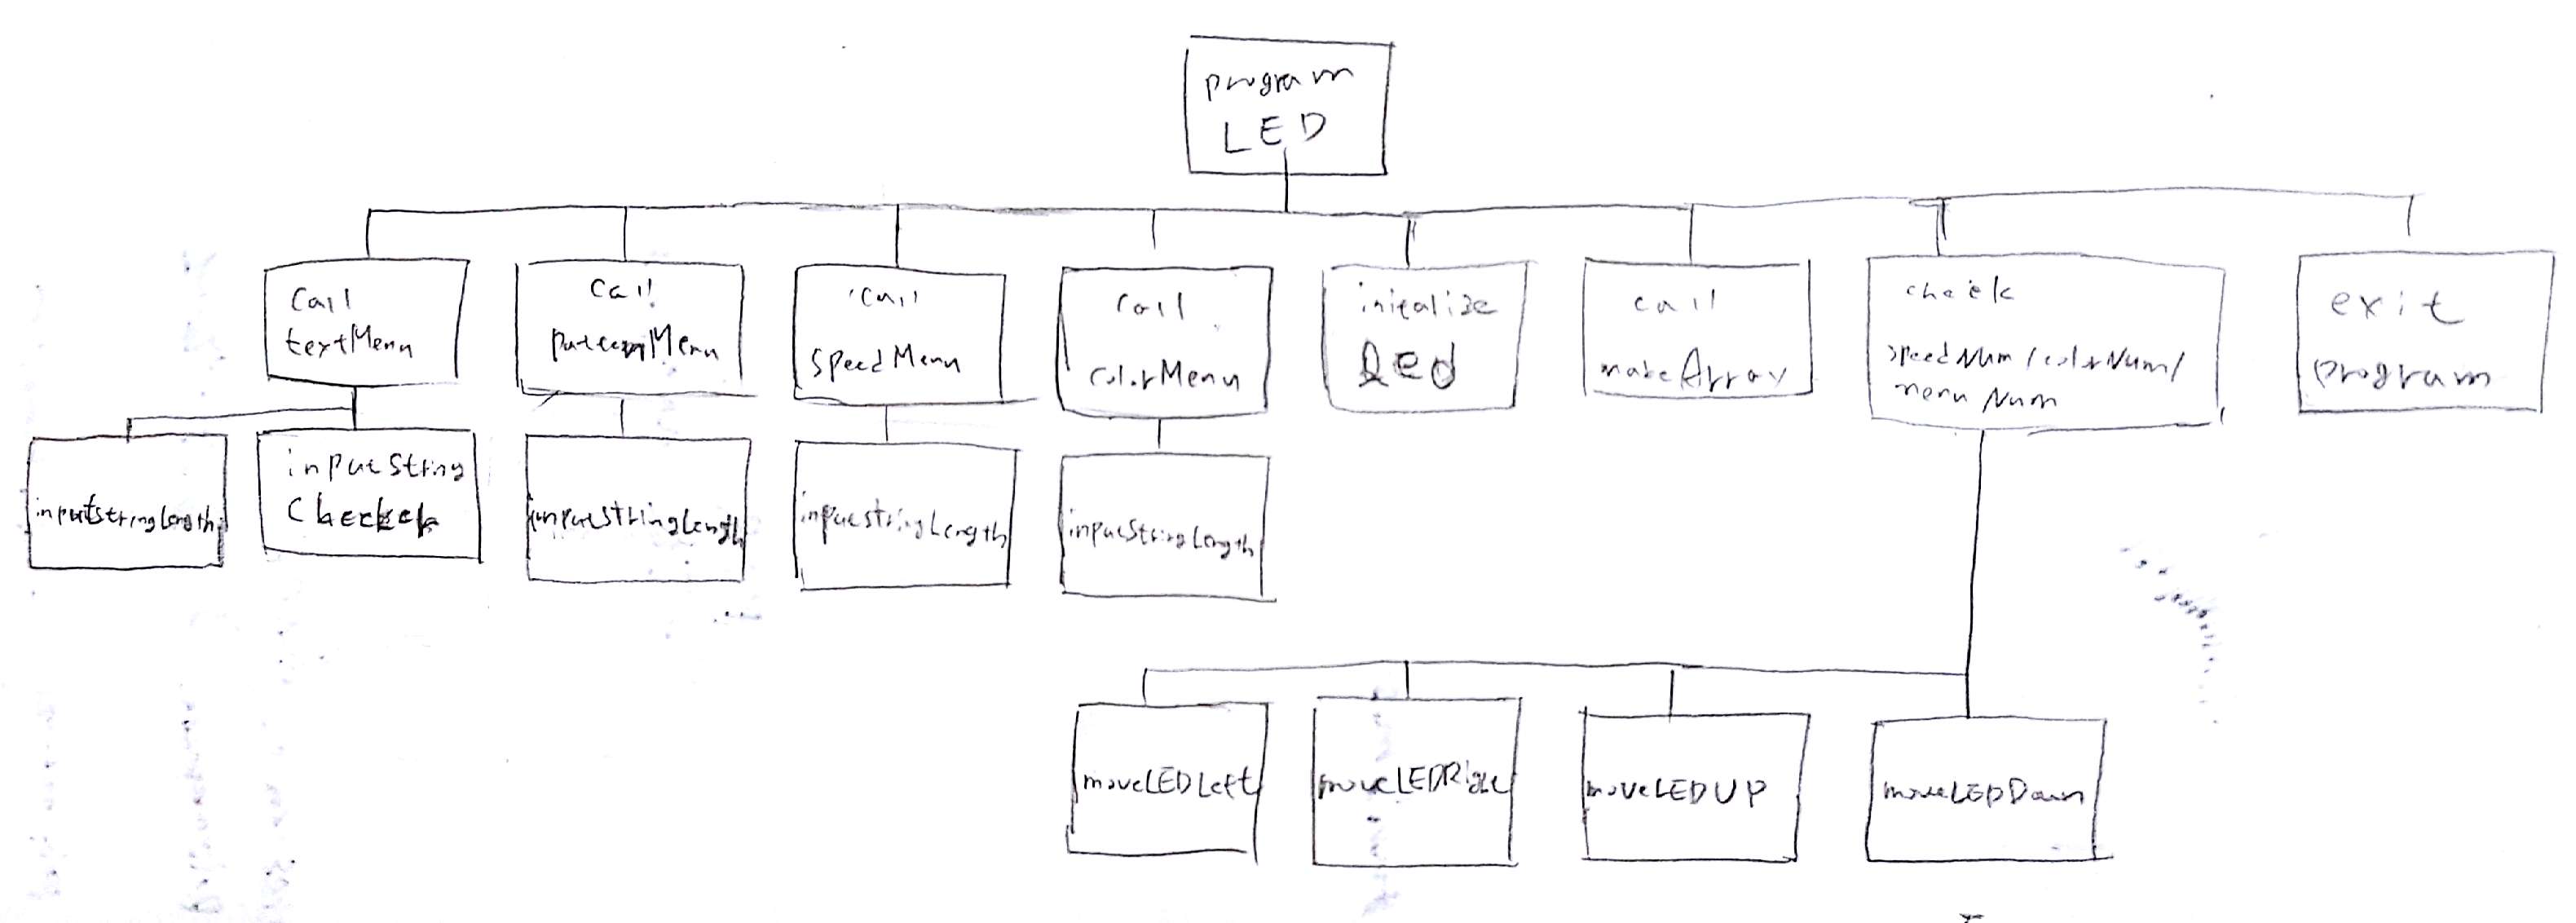 program
LED
Call
textMenu
Call
patternMenu
Call
SpeedMenu
Call
colorMenu
initalize
led
call
makeArray
check
speedNum/colorNum/
menuNum
exit
program
inputstringLength
inputString
Checker
inputStringLength
inputstringLength
inputStringLength
moveLEDLeft
moveLEDRight
moveLEDUP
moveLEDDown